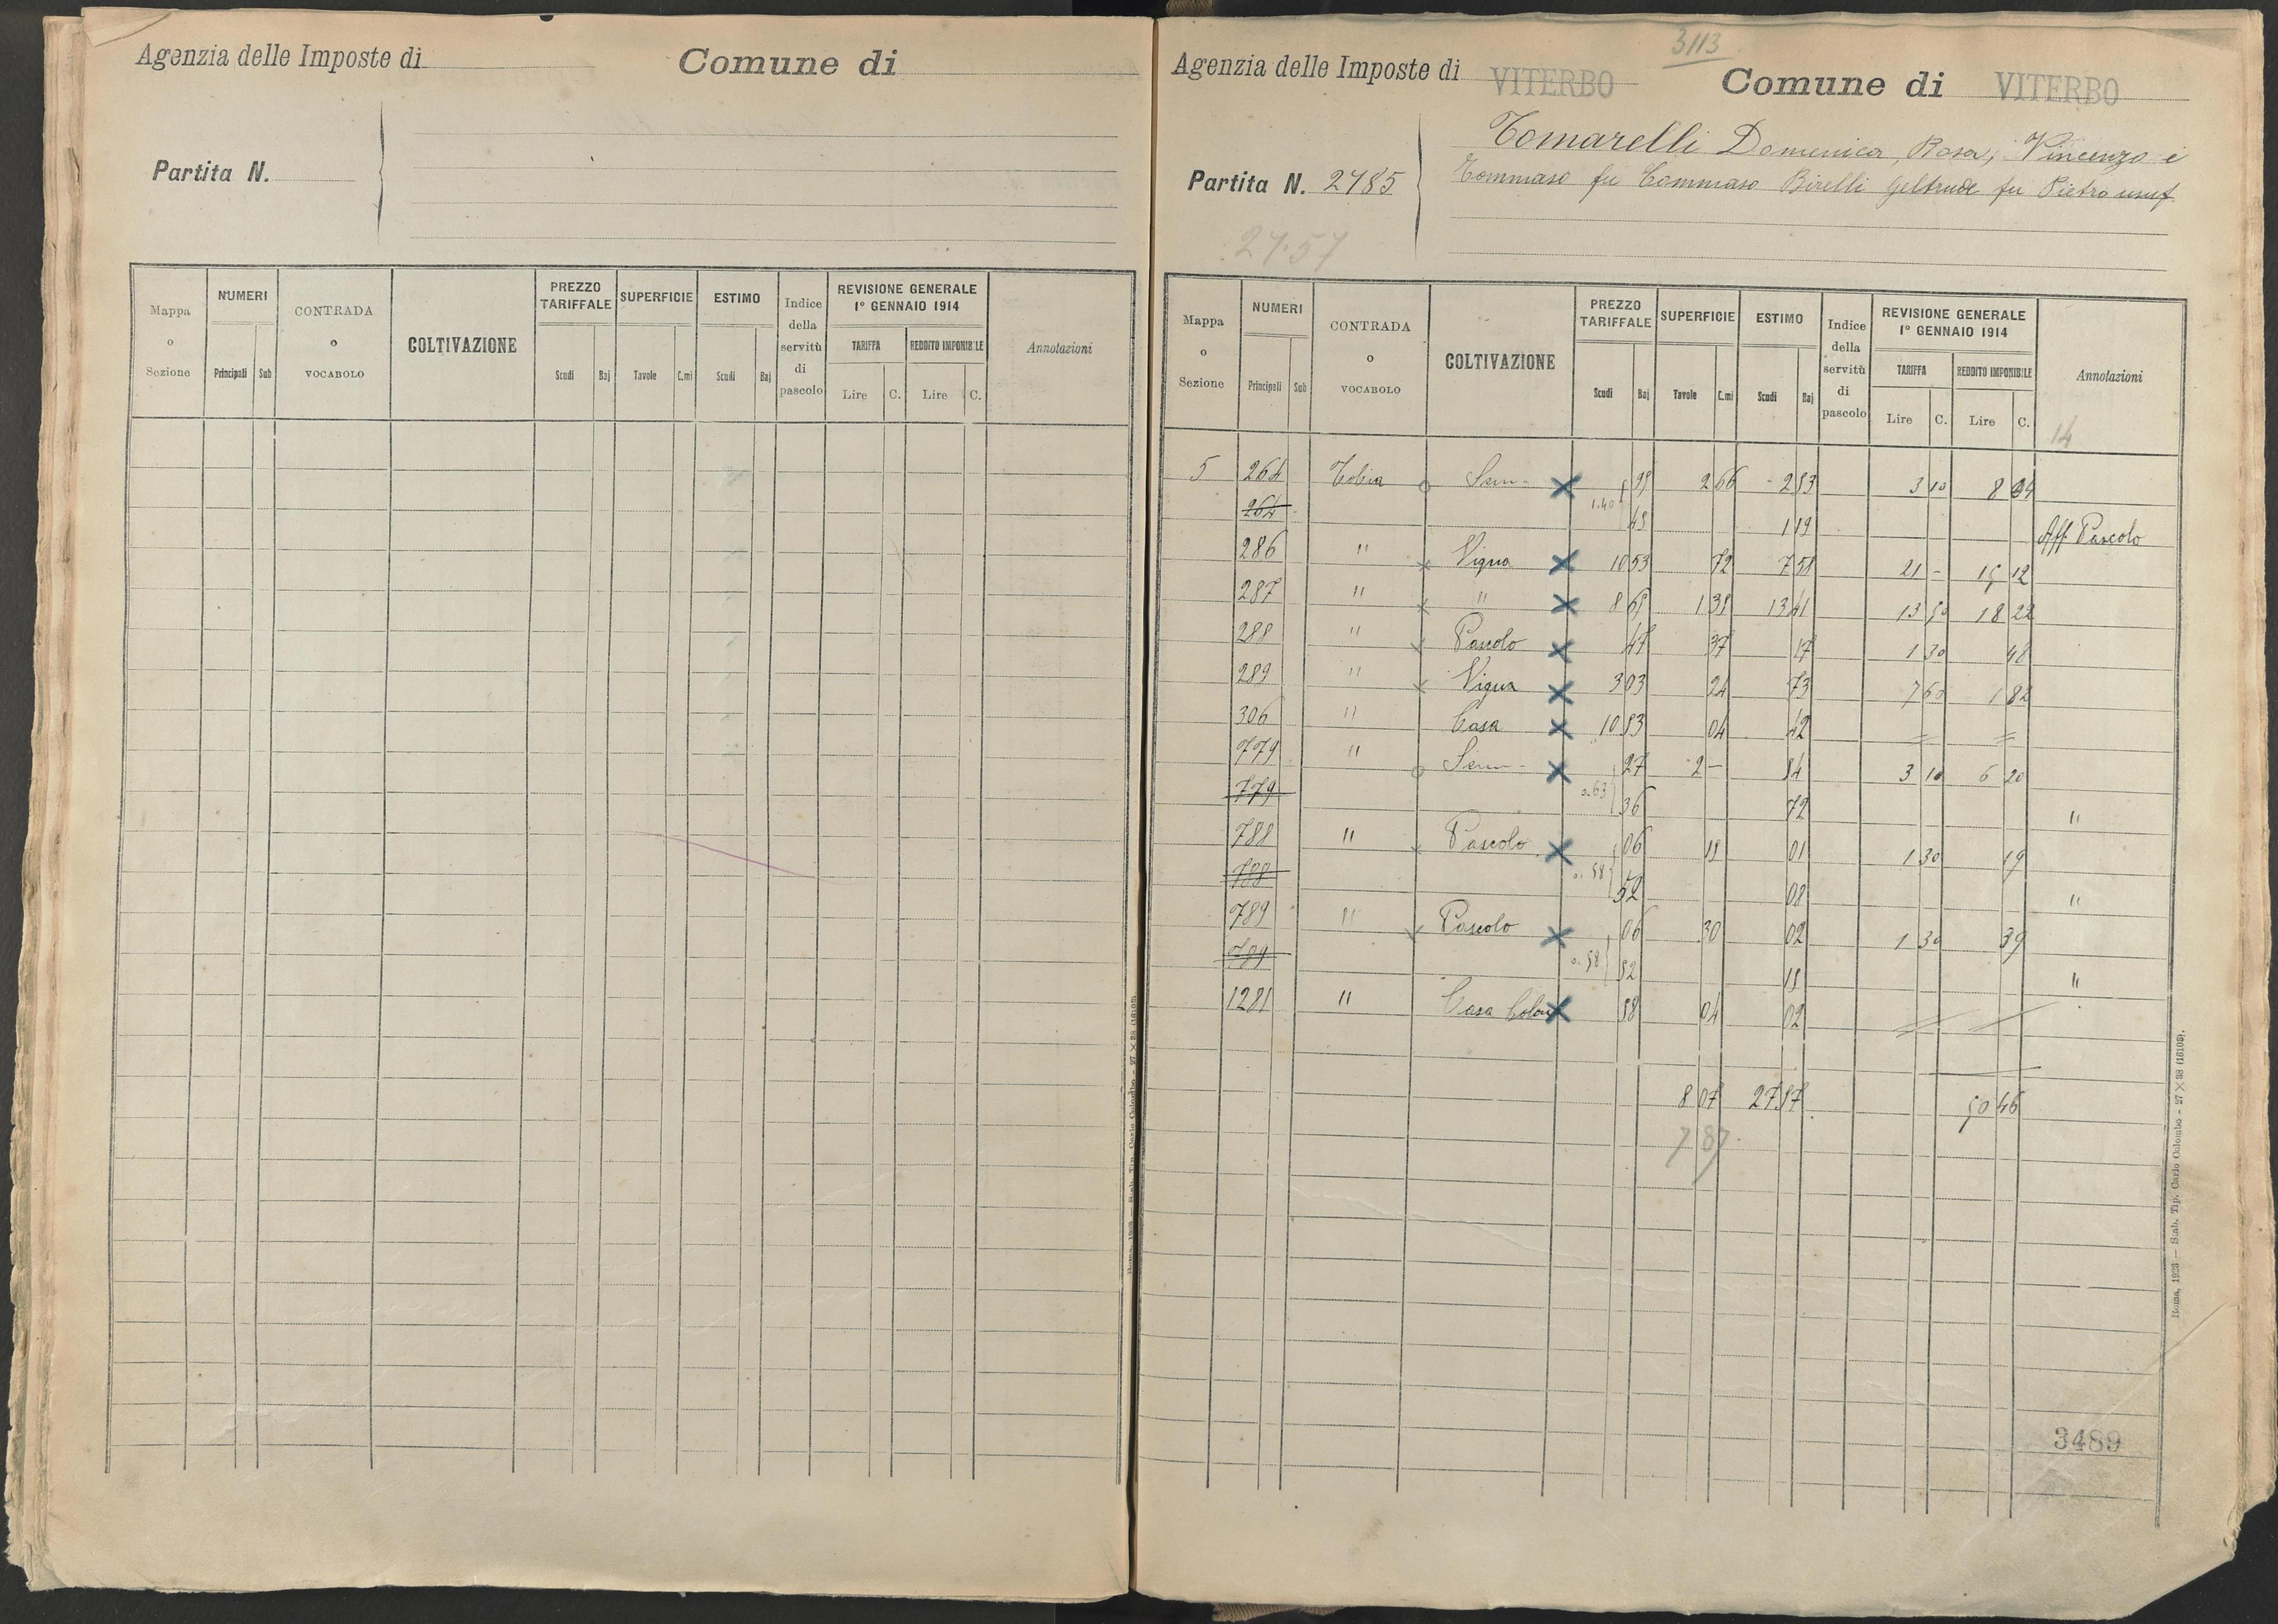 Agenzia delle Imposte di Comune di
Partita N.
Mappa o Sezione NUMERI Principali Sub CONTRADA o VOCABOLO COLTIVAZIONE PREZZO TARIFFALE Scudi Baj SUPERFICIE Tavole C.mi ESTIMO Scudi Baj Indice della servitù di pascolo REVISIONE GENERALE 1° GENNAIO 1914 TARIFFA Lire C. REDDITO IMPONIBILE Lire C. Annotazioni
3113
Agenzia delle Imposte di VITERBO Comune di VITERBO
Tomarelli Domenica, Rosa, Vincenzo e
Partita N. 2785 Tommaso fu Tommaso Birelli Geltrude fu Pietro usuf.
27.57
Mappa o Sezione NUMERI Principali Sub CONTRADA o VOCABOLO COLTIVAZIONE PREZZO TARIFFALE Scudi Baj SUPERFICIE Tavole C.mi ESTIMO Scudi Baj Indice della servitù di pascolo REVISIONE GENERALE 1° GENNAIO 1914 TARIFFA Lire C. REDDITO IMPONIBILE Lire C. Annotazioni
14
5 264 Tobia Sem- 95 2 66 2 53 3 10 8
264 1.40 45 1 19 Aff. Pascolo
286 " Vigna 10 53 72 7 58 21 - 15 12
287 " " 8 65 1 35 13 41 13 50 18 22
288 " Pascolo 47 37 17 1 30 48
289 " Vigna 3 03 24 73 7 60 1 82
306 " Casa 10 53 04 42 = =
779 " Sem- 27 2 - 54 3 10 6 20
779 0.63 36 72 "
788 " Pascolo 06 15 01 1 30 19
788 0.58 52 08 "
789 " Pascolo 06 30 02 1 30 39
789 0.58 52 15 "
1281 " Casa Colon 58 04 02
8 07 27 57 50 46
7 87
3489
Roma, 1923 — Stab. Tip. Carlo Colombo - 27 × 38 (16109).